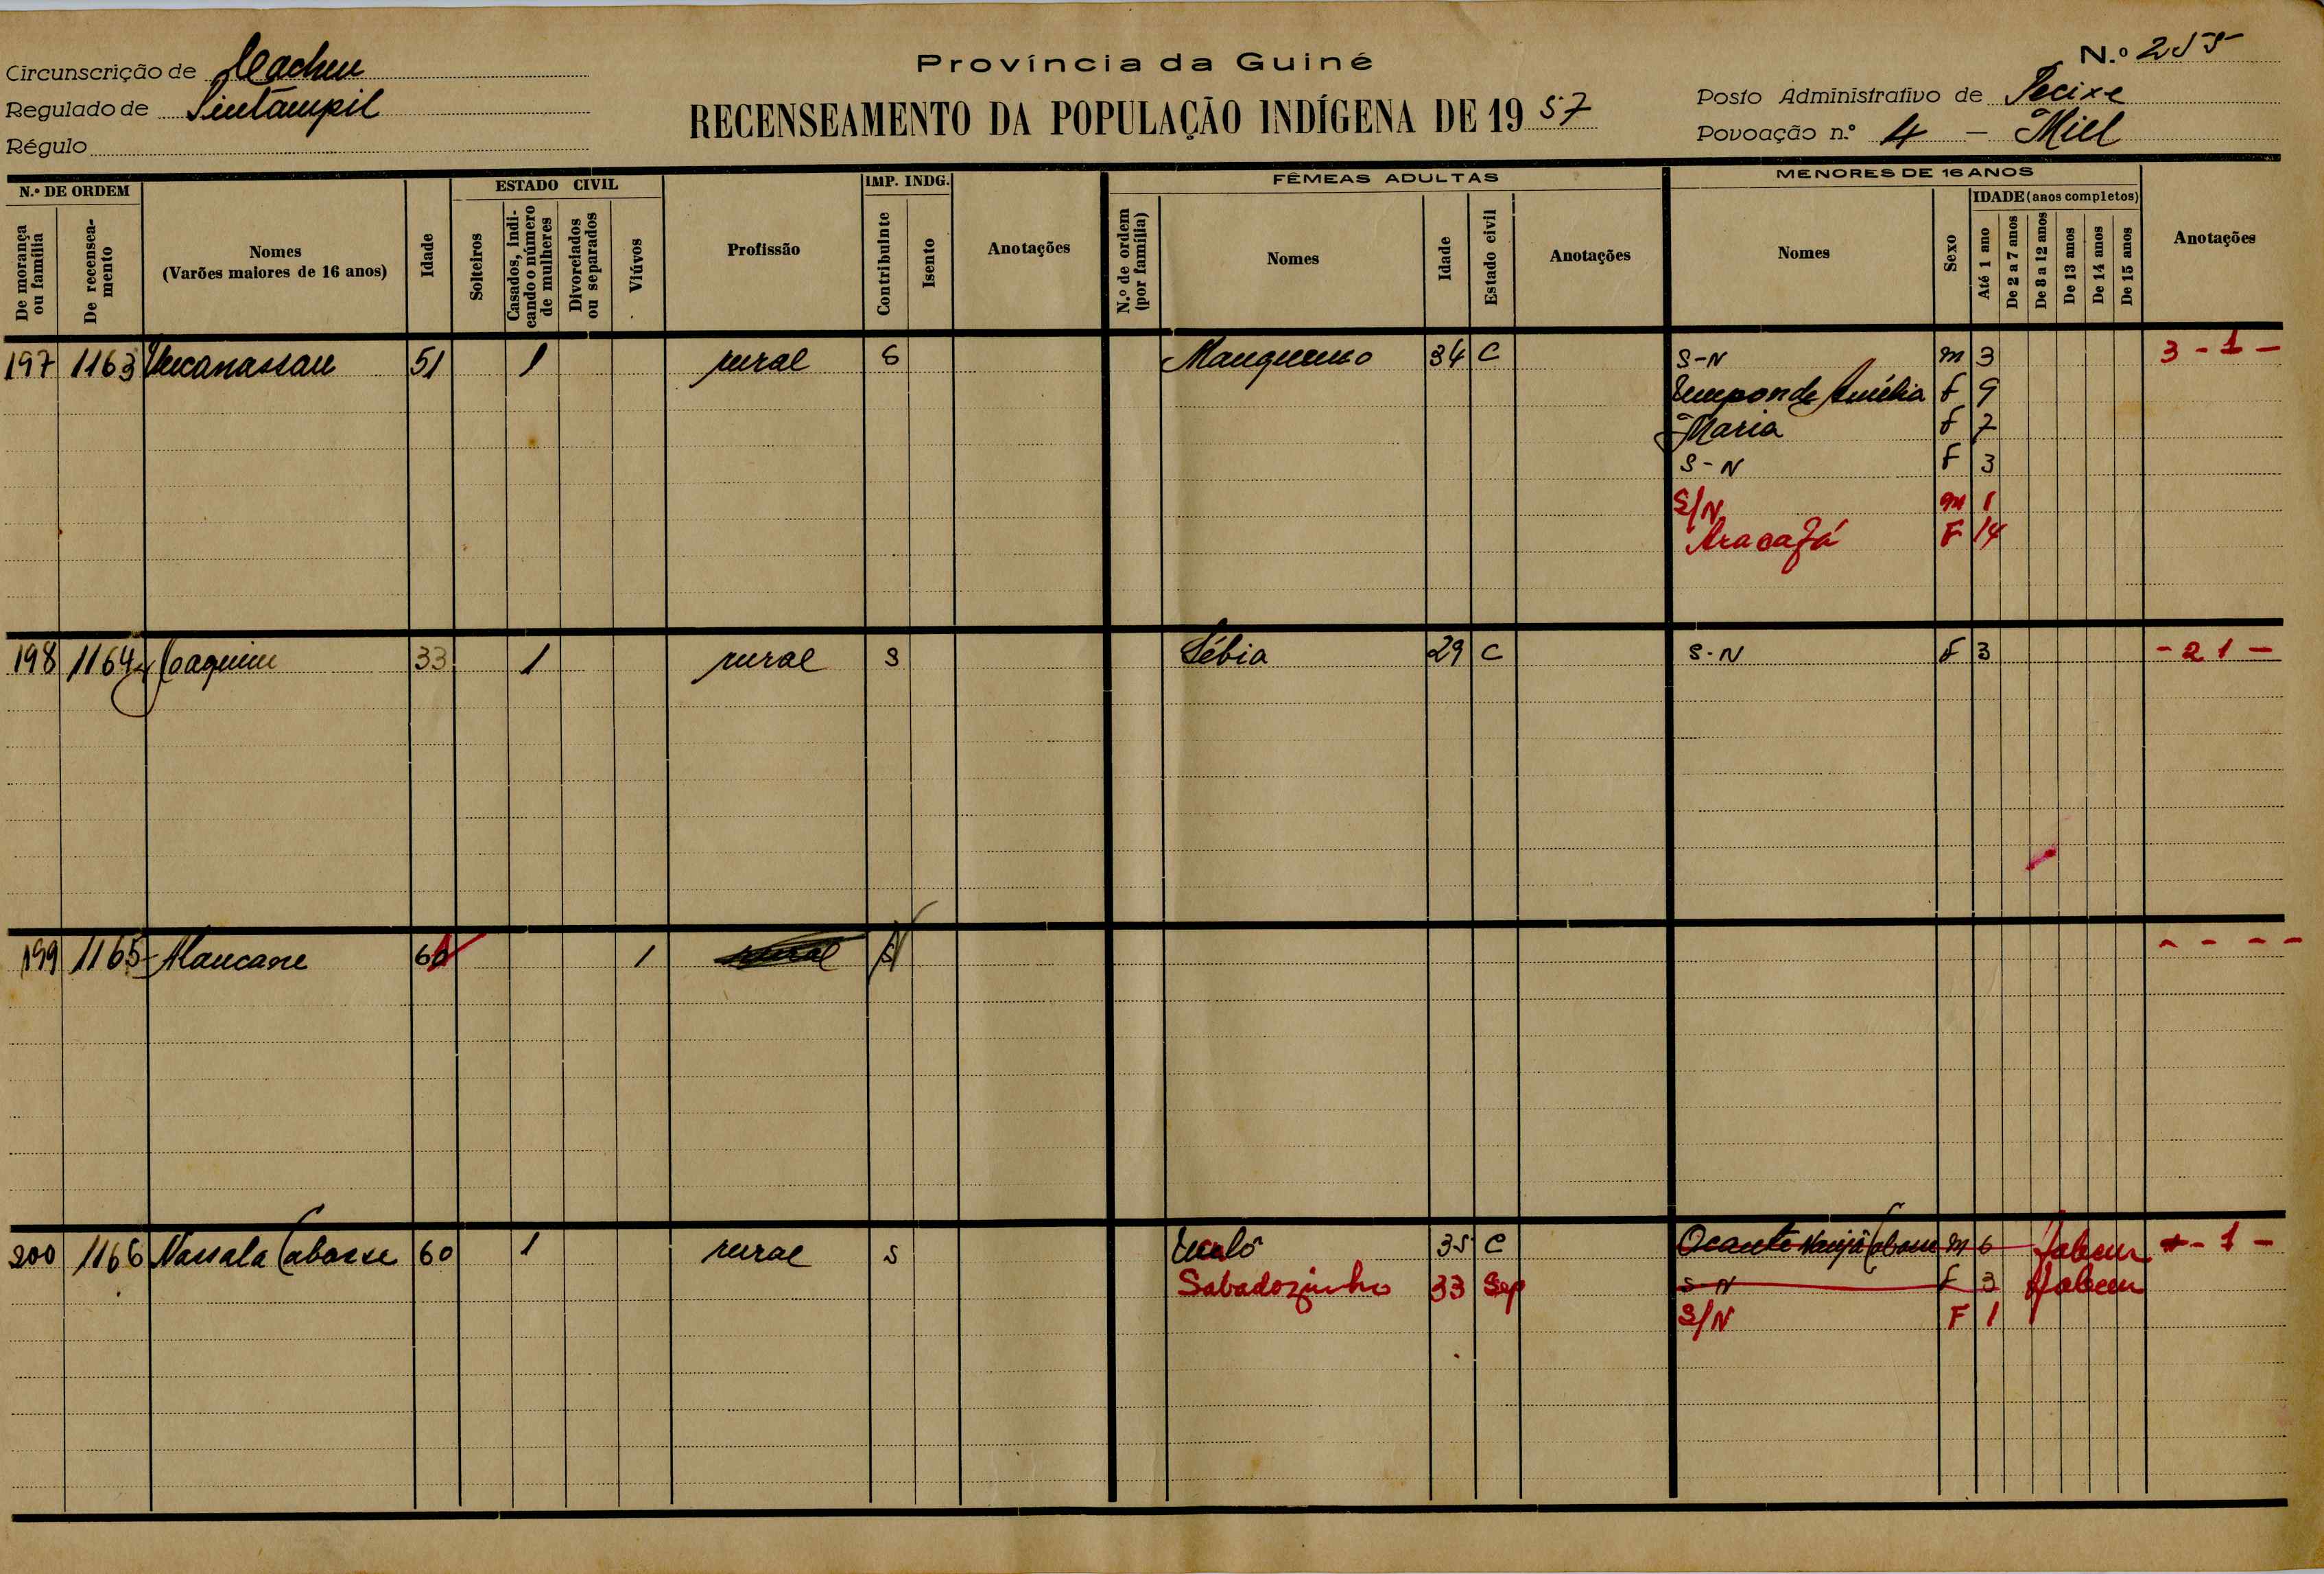 Província da Guiné
N.º 255
Circunscrição de Cacheu
Regulado de Sintampil
Régulo
RECENSEAMENTO DA POPULAÇÃO INDÍGENA DE 19 57
Posto Administrativo de Pecixe
Povoação n.º 4 - Miel
N.º DE ORDEM
De morança ou família
De recenseamento
Nomes
(Varões maiores de 16 anos)
Idade
ESTADO CIVIL
Solteiros
Casados, indicando o número de mulheres
Divorciados ou separados
Viúvos
Profissão
IMP. INDG.
Contribuinte
Isento
Anotações
FÊMEAS ADULTAS
N.º de ordem (por família)
Nomes
Idade
Estado civil
Anotações
MENORES DE 16 ANOS
Nomes
Sexo
IDADE (anos completos)
Até 1 ano
De 2 a 7 anos
De 8 a 12 anos
De 13 anos
De 14 anos
De 15 anos
Anotações
197 1163 51 1 rural S 34 C S-N m 3 3 - 1 -
Amélia F 9
Maria F 7
S-N F 3
S/N m 1
Aracafá F 14
198 1164 Joaquim 33 1 rural S Sébia 29 C S-N F 3 - 2 1 -
199 1165 Maucane 60 1 rural S - - - -
200 1166 Nassala Cabosse 60 1 rural S 35 C Ocante m 6 - 1 -
Sabadozinho 33 Sep S-N F 3
S/N F 1